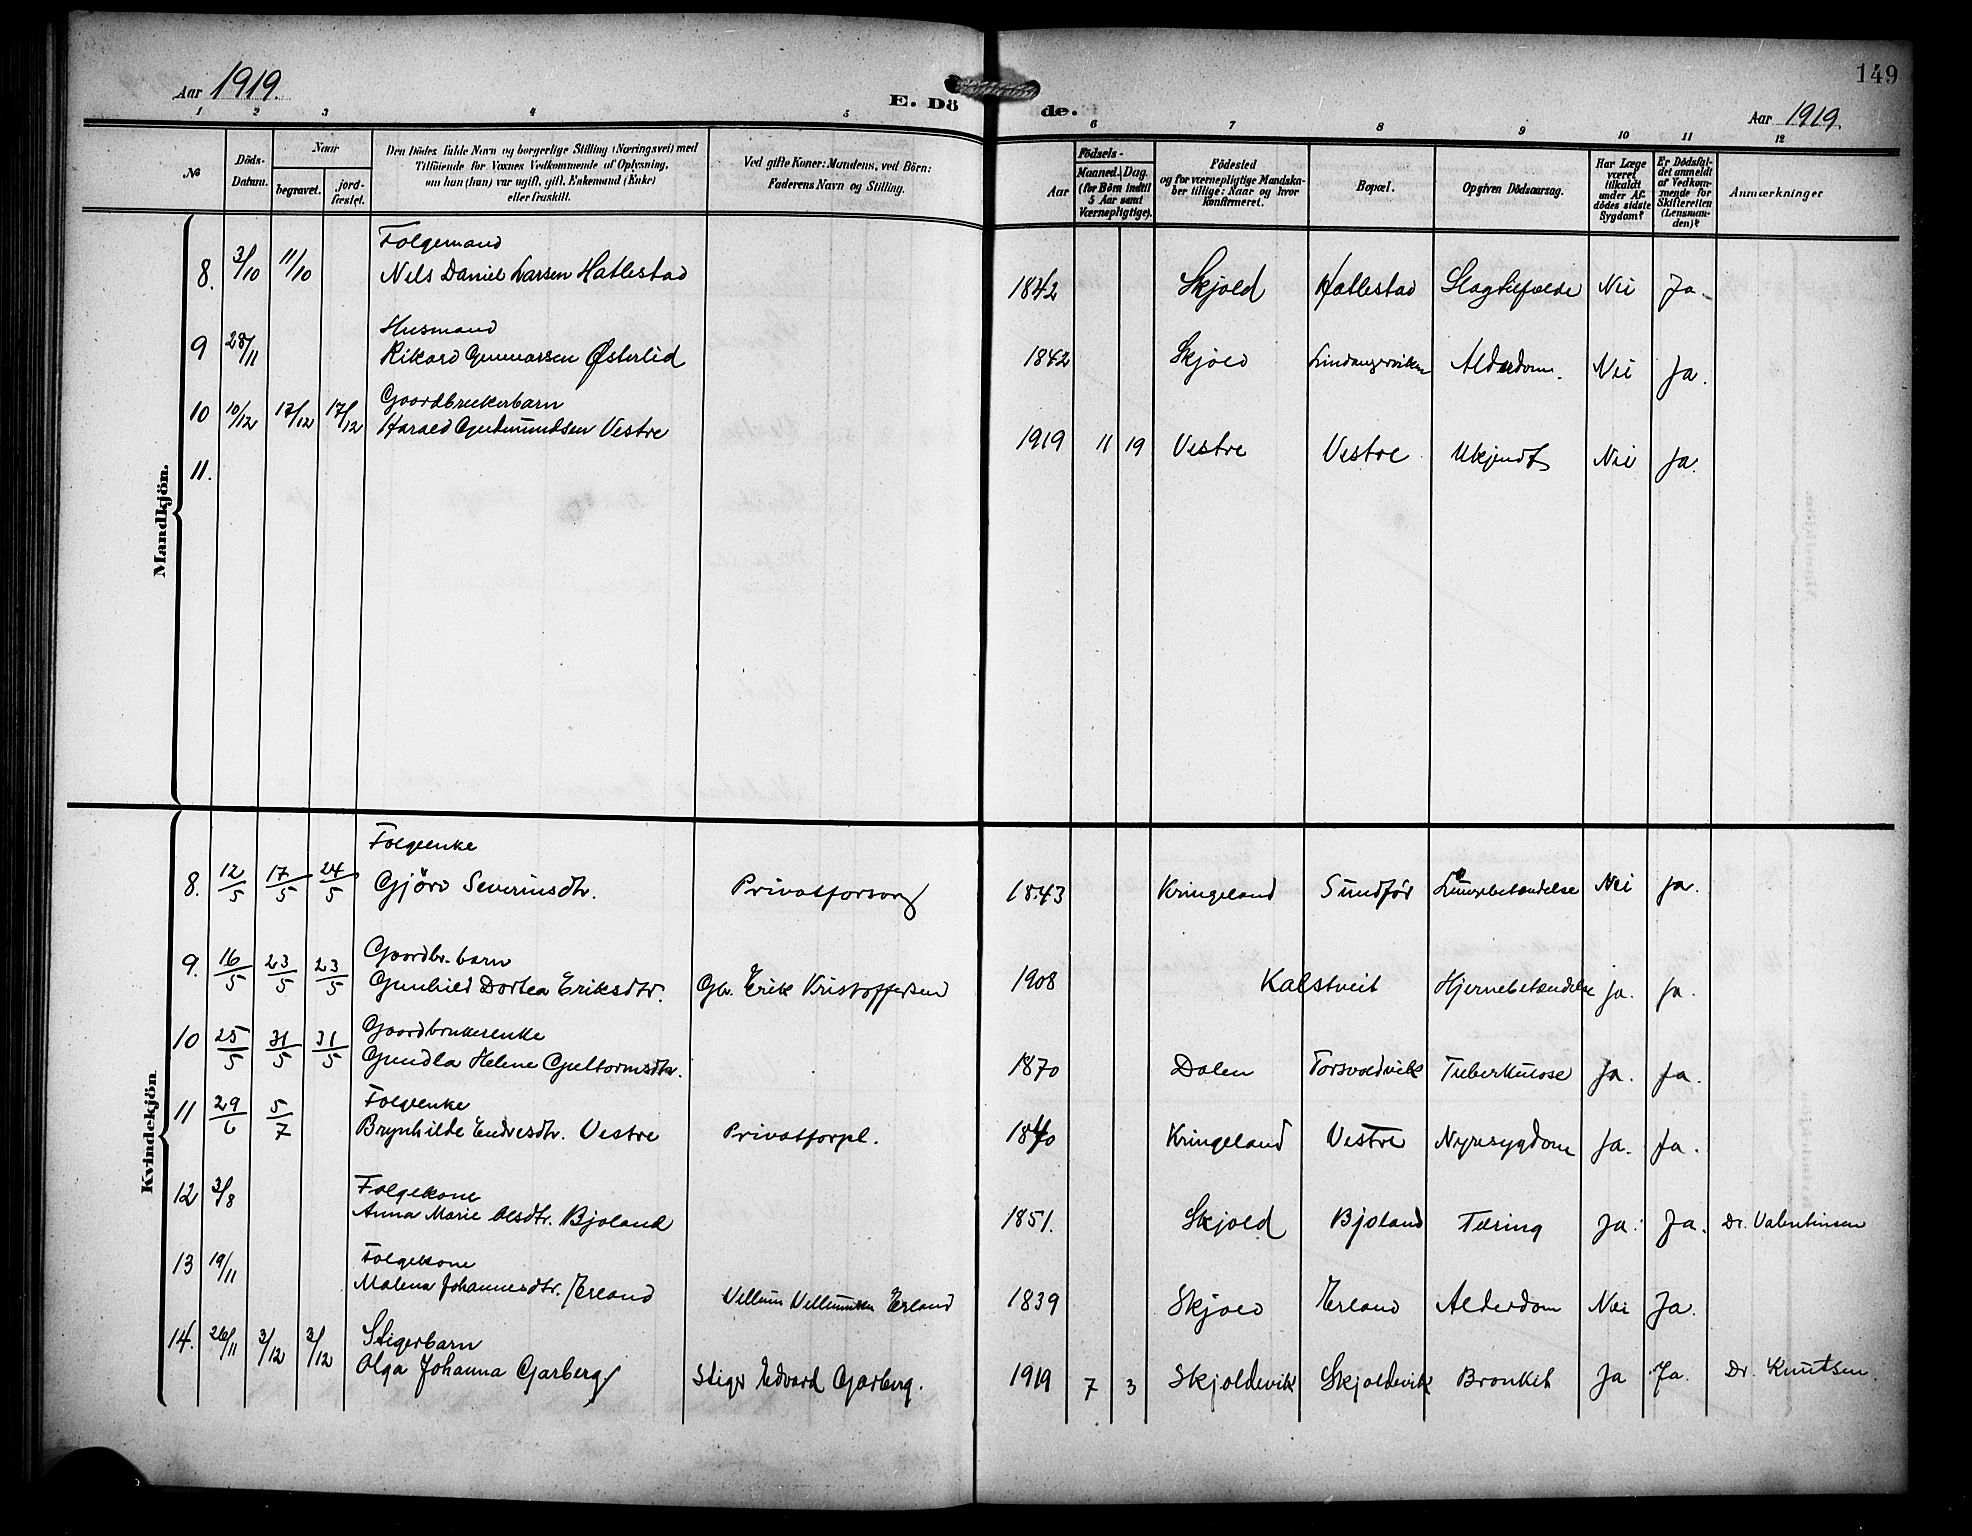 149
Aar 1919.
E. Dö de.
Aar 1919
1 2 3 4 5 6 7 8 9 10 11 12
№
Döds-
Datum.
Naar
begravet.
jord-
fæstet.
Den Dödes fulde Navn og borgerlige Stilling (Næringsvei) med
Tilföiende for Voxnes Vedkommende af Oplysning,
om han (hun) var ugift, gift, Enkemand (Enke)
eller fraskilt.
Ved gifte Koner: Mandens, ved Börn:
Faderens Navn og Stilling.
Födsels-
Aar
Maaned. Dag.
(for Börn indtil
5 Aar samt
Værnepligtige).
Födested
og for værnepligtige Mandska-
ber tillige: Naar og hvor
konfirmeret.
Bopæl.
Opgiven Dödsaarsag.
Har Læge
været
tilkaldt
under Af-
dödes sidste
Sygdom?
Er Dödsfal-
det anmeldt
af Vedkom-
mende for
Skifteretten
(Lensman-
den)?
Anmærkninger
Mandkjön.
Folgemand
8. 3/10 11/10 Nils Daniel Larsen Hatlestad 1842 Skjold Hatlestad Slagtilfælde Nei Ja
Husmand
9 28/11 Rikard Gunnarsen Østerlid 1842 Skjold Alderdom. Nei Ja.
Gaardbrukerbarn
10 10/12 17/12 17/12 Harald Gudmundsen Vestre 1919 11 19 Vestre Vestre Ukjendt Nei Ja.
11.
Kvindekjön
Folgeenke
8. 12/5 17/5 24/5 Gjöro Severinsdtr. Privatforsorg 1843 Kringeland Sundför Lungebetændelse Nei Ja.
Gaardbr. barn
9. 16/5 23/5 23/5 Gunhild Dortea Eriksdtr. Gbr. Erik Kristoffersen 1908 Kalstveit Hjernebetændelse Ja. Ja.
Gaardbrukerenke
10 25/5 31/5 31/5 Gundla Helene Guttormsdtr. 1870 Dalen Torsvoldvik Tuberkulose Ja. Ja.
Folgeenke
11 29/6 5/7 Brynhilde Endresdtr. Vestre Privatforpl. 1840 Kringeland Vestre Nyresygdom Ja. Ja.
Folgekone
12 3/8 Anna Marie Olsdtr. Bjoland 1851. Skjold Bjoland Tæring Ja. Ja. Dr. Valentinsen
Folgekone
13 19/11 Malena Johannesdtr. Erland Vellum Vellumsen Erland 1839 Skjold Erland Alderdom Nei Ja.
Stigerbarn
14. 26/11 3/12 3/12 Olga Johanna Garberg Stiger Edvard Garberg. 1919 7 3 Skjoldevik Skjoldevik Bronkit Ja Ja. Dr. Knutsen.